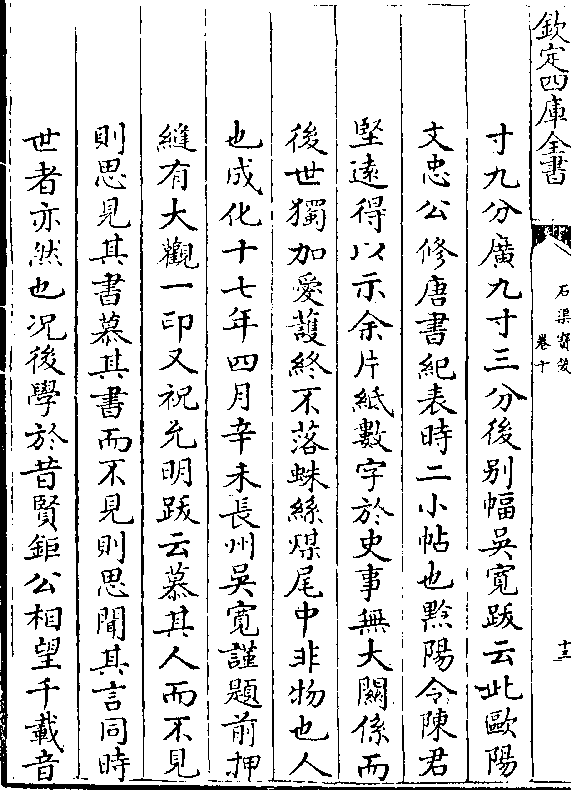 欽定四庫全書
石渠寶笈
卷十
十三
寸九分廣九寸三分後别幅吳寛䟦云此歐陽
文忠公修唐書紀表時二小帖也黟陽令陳君
堅遠得以示余片紙數字於史事無大闗係而
後世獨加愛䕶終不落蛛絲煤尾中非物也人
也成化十七年四月辛未長州吳寛謹題前押
縫有大觀一印又祝允明䟦云慕其人而不見
則思見其書慕其書而不見則思聞其言同時
世者亦然也况後學於昔賢鉅公相望千載音